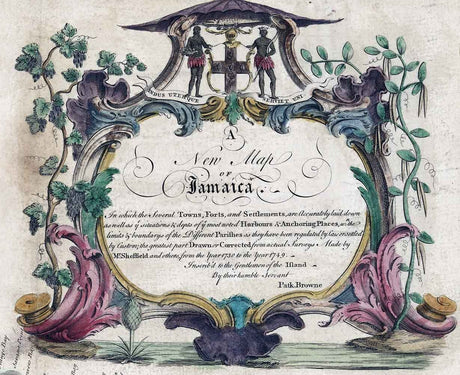 INDUS UTERQUE SERVIET UNI
A
New Map
OF
Jamaica.
In which the Several Towns, Forts, and Settlements, are Accurately laid down
as well as yᵉ situations & depts of yᵉ most noted Harbours & Anchoring Places, wᵗʰ the
limits & boundarys of the Different Parishes as they have been regulated by Laws or settled
by Custom; the greatest part Drawn or Corrected from actual Surveys Made by
Mʳ Sheffield and others, from the Year 1730 to the Year 1749.
Inscrib'd to the Gentlemen of the Island
By their humble Servant
Patk. Browne